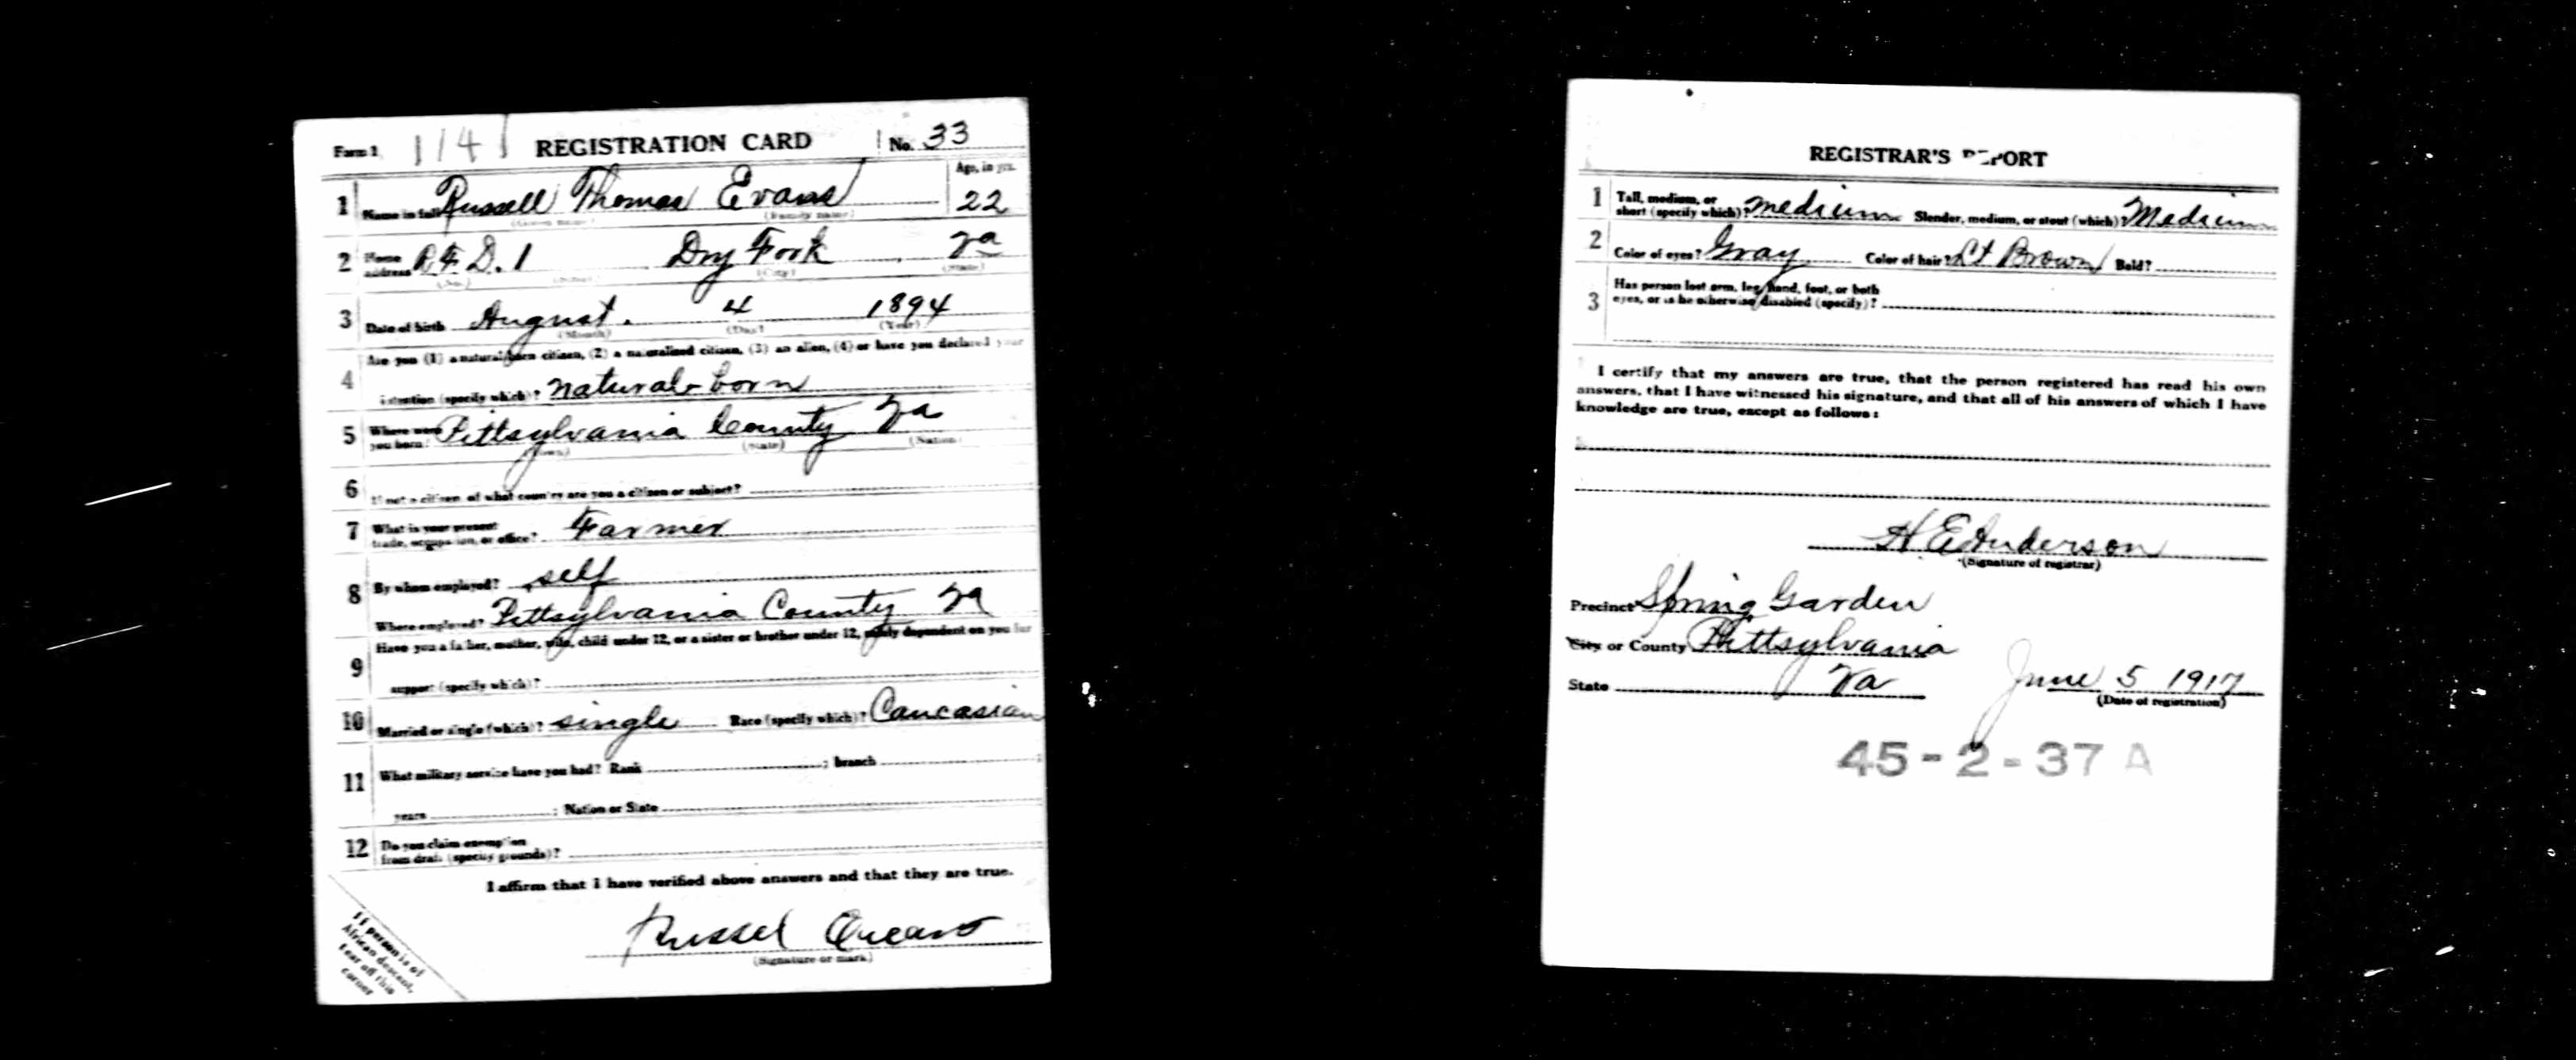 Form 1 1141 REGISTRATION CARD No. 33
1 Name in full Russell Thomas Evans Age, in yrs. 22
(Given name) (Family name)
2 Home address R.F.D. 1 Dry Fork Va
(No.) (Street) (City) (State)
3 Date of birth August. 4 1894
(Month) (Day) (Year)
4 Are you (1) a natural-born citizen, (2) a naturalized citizen, (3) an alien, (4) or have you declared your
intention (specify which)? natural-born
5 Where were you born? Pittsylvania County Va
(Town) (State) (Nation)
6 If not a citizen, of what country are you a citizen or subject?
7 What is your present trade, occupation, or office? Farmer
8 By whom employed? self
Where employed? Pittsylvania County Va
9 Have you a father, mother, wife, child under 12, or a sister or brother under 12, solely dependent on you for
support (specify which)?
10 Married or single (which)? single Race (specify which)? Caucasian
11 What military service have you had? Rank ; branch ;
years ; Nation or State
12 Do you claim exemption
from draft (specify grounds)?
I affirm that I have verified above answers and that they are true.
Russel Evans
(Signature or mark)
If person is of
African descent,
tear off this
corner
REGISTRAR'S REPORT
1 Tall, medium, or
short (specify which)? medium Slender, medium, or stout (which)? Medium
2 Color of eyes? Gray Color of hair? Lt Brown Bald?
3 Has person lost arm, leg, hand, foot, or both
eyes, or is he otherwise disabled (specify)?
I certify that my answers are true, that the person registered has read his own
answers, that I have witnessed his signature, and that all of his answers of which I have
knowledge are true, except as follows:
H E Anderson
(Signature of registrar)
Precinct Spring Garden
City or County Pittsylvania
State Va June 5 1917
(Date of registration)
45-2-37 A